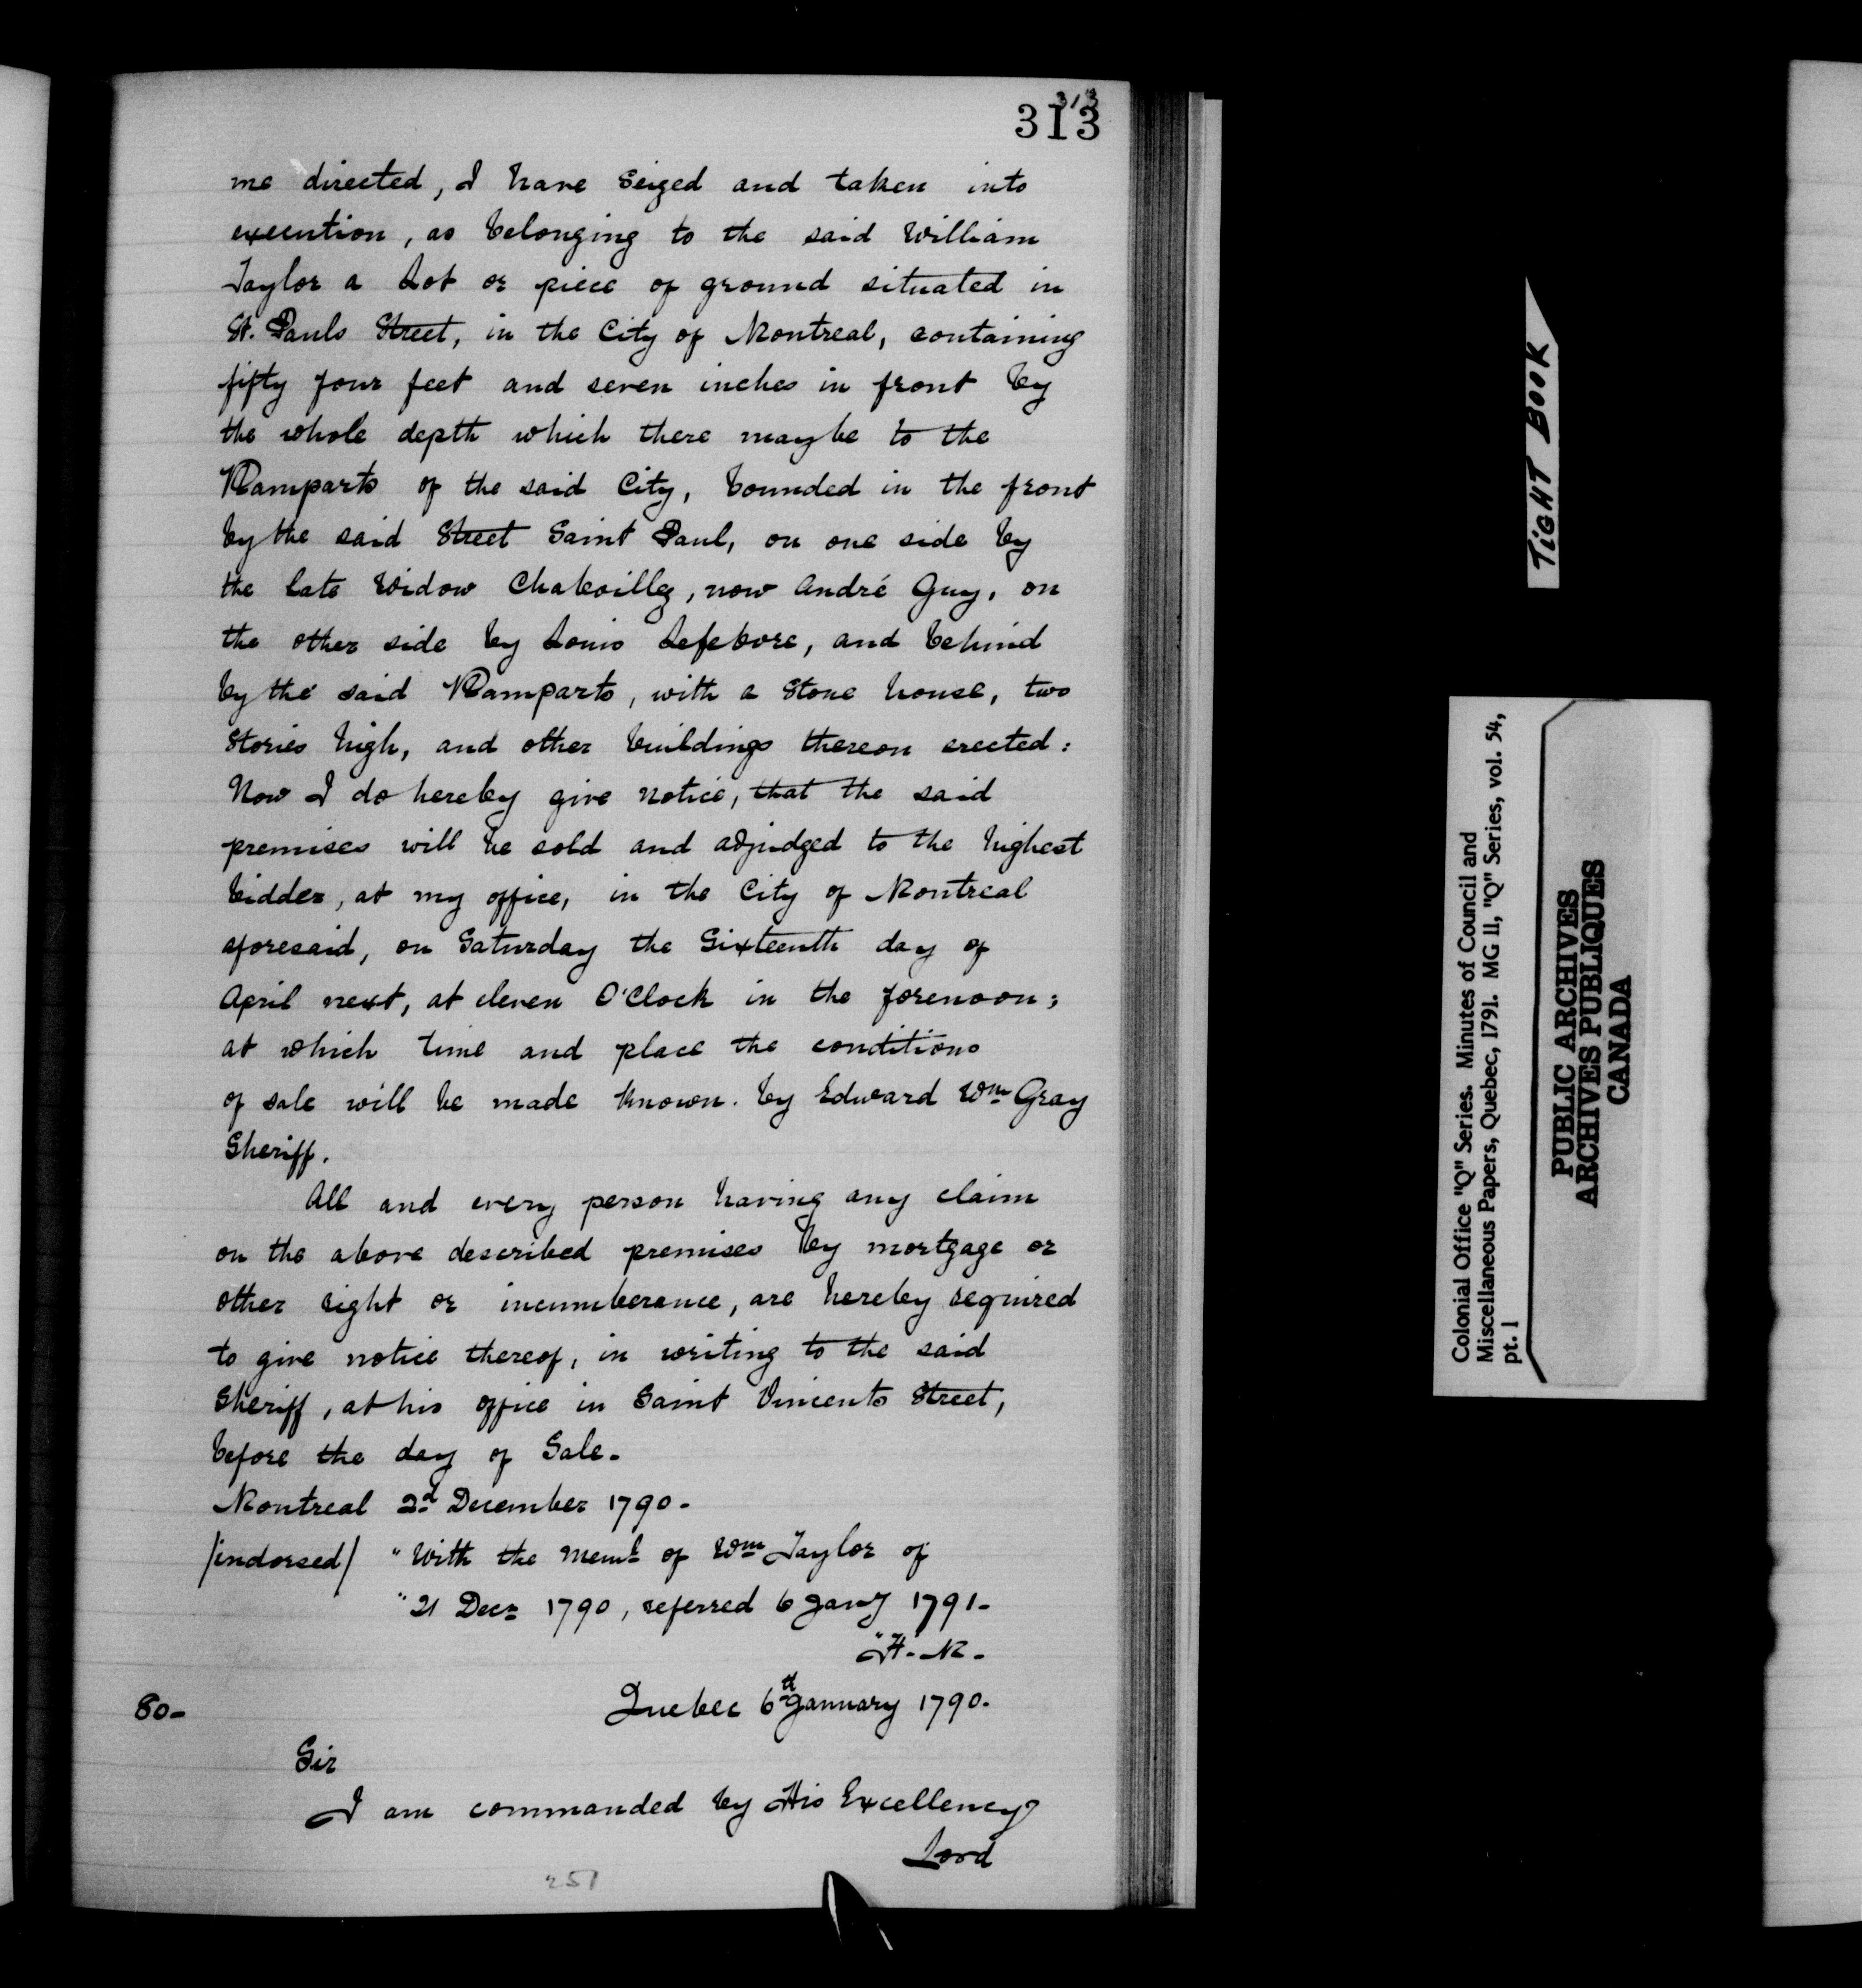 313
313
me directed, I have Seized and taken into
execution, as belonging to the said William
Taylor a Lot or piece of ground situated in
St. Pauls Street, in the City of Montreal, containing
fifty four feet and seven inches in front by
the whole depth which there may be to the
Ramparts of the said City, bounded in the front
by the said Street Saint Paul, on one side by
the late Widow Chaboillez, now André Guy, on
the other side by Louis Lefebvre, and behind
by the said Ramparts, with a Stone house, two
Stories high, and other buildings thereon erected:
Now I do hereby give notice, that the said
premises will be sold and adjudged to the highest
bidder, at my office, in the City of Montreal
aforesaid, on Saturday the Sixteenth day of
April next, at eleven O'Clock in the forenoon;
at which time and place the conditions
of sale will be made known. by Edward Wm Gray
Sheriff.
All and every person having any claim
on the above described premises by mortgage or
other right or incumberance, are hereby required
to give notice thereof, in writing to the said
Sheriff, at his office in Saint Vincents Street,
before the day of Sale.
Montreal 2d December 1790.
/indorsed/ "With the Meml of Wm Taylor of
"21 Decr 1790, referred 6 Jany 1791-
"H. M.
80-
Quebec 6th January 1790.
Sir
I am commanded by His Excellency
Lord
251
TIGHT BOOK
Colonial Office "Q" Series. Minutes of Council and
Miscellaneous Papers, Quebec, 1791. MG 11, "Q" Series, vol. 54,
pt. 1
PUBLIC ARCHIVES
ARCHIVES PUBLIQUES
CANADA